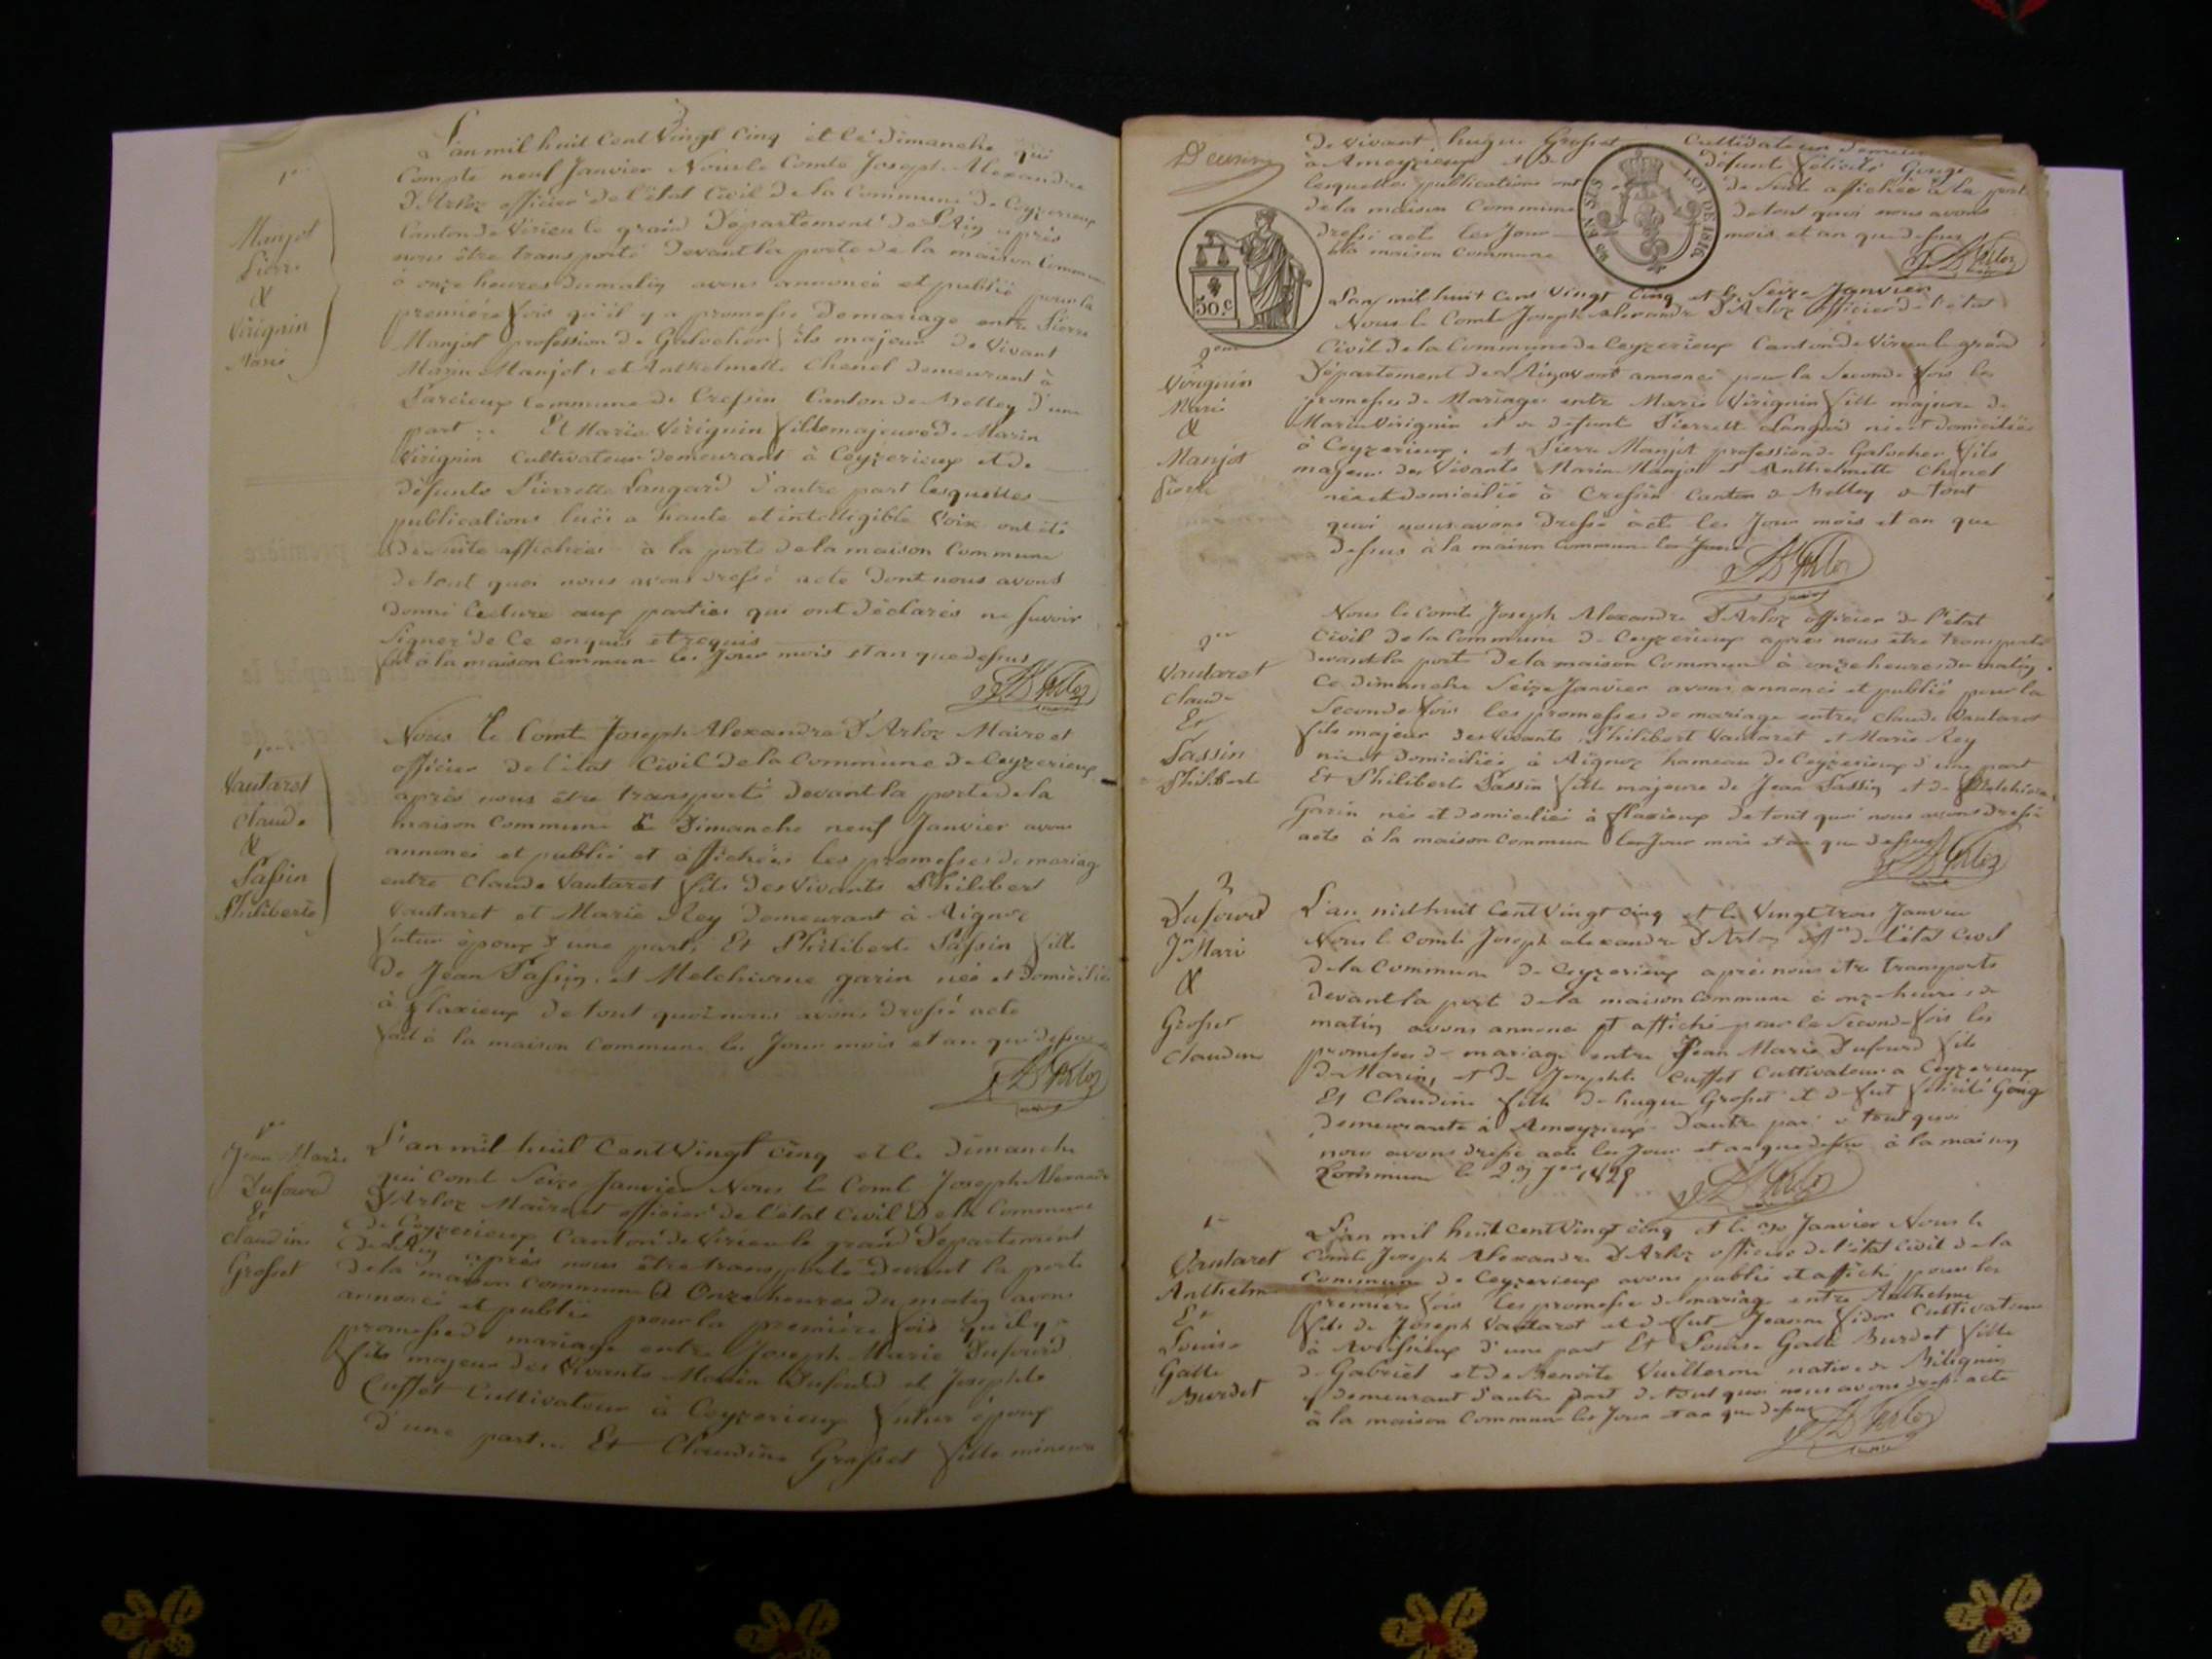 1er
Manjot
Pierre
&
Virignin
Marie
L'an mil huit Cent Vingt Cinq et le dimanche qui
Compte neuf Janvier Nous le Comte Joseph Alexandre
D'Arloz officier de l'état Civil de la Commune de Ceyzerieux
Canton de Virieu le grand Département de l'Ain après
nous être transporté devant la porte de la maison Commune
à onze heures du matin avons annoncé et publié pour la
première fois qu'il y a promesse de mariage entre Pierre
Manjot profession de Galocher fils majeur de Vivant
Marin Manjot, et Anthelmette Chenel demeurant à
Parcieux Commune de Cressin Canton de Belley d'une
part Et Marie Virignin fille majeure de Marin
Virignin Cultivateur demeurant à Ceyzerieux et de
défunte Pierrette Langard d'autre part lesquelles
publications lües a haute et intelligible Voix ont été
de suite affichées à la porte de la maison Commune
de tout quoi nous avons dressé acte dont nous avons
donné lecture aux parties qui ont déclarés ne savoir
Signer de Ce enquis et requis
fait à la maison Commune les Jour mois et an que dessus
J A D'Arloz
1er
Vautaret
Claude
&
Passin
Philiberte
Nous le Comte Joseph Alexandre D'Arloz Maire et
officier de l'état Civil de la Commune de Ceyzerieux
après nous être transporté devant la porte de la
maison Commune Ce Dimanche neuf Janvier avons
annoncé et publié et affichées les promesses de mariage
entre Claude Vautaret fils des Vivants Philibert
Vautaret et Marie Rey demeurant à Aignoz
futur époux d'une part, Et Philiberte Passin fille
de Jean Passin, et Melchionne garin née et domiciliée
à flaxieux de tout quoi nous avons dressé acte
fait à la maison Commune les Jour mois et an que dessus
J A D'Arloz
1er
Jean Marie
Dufourd
Et
Claudine
Grosset
L'an mil huit Cent Vingt Cinq et le dimanche
qui Comte Seize Janvier Nous le Comte Joseph Alexandre
D'Arloz Maire et officier de l'état Civil de la Commune
de Ceyzerieux Canton de Virieu le grand Département
de l'Ain après nous être transporté devant la porte
de la maison Commune à Onze heures du matin avons
annoncé et publié pour la première fois qu'il y a
promesse de mariage entre Joseph Marie Dufourd
fils majeur des Vivants Marin Dufourd et Josephte
Cuffet Cultivateur à Ceyzerieux futur époux
d'une part... Et Claudine Grosset fille mineure
Deuxième
de Vivant hugue Grosset Cultivateur
à Ameyzieux et de défunte félicité
lesquelles publications ont été de Suite affichée à la porte
de la maison Commune de tout quoi nous avons
dressé acte les Jour mois et an que dessus
à la maison Commune
J A D'Arloz
50 c
LOI DE 1816
L'an mil huit Cent Vingt Cinq et le Seize Janvier
Nous le Comte Joseph Alexandre D'Arloz Officier de l'état
Civil de la Commune de Ceyzerieux Canton de Virieu le grand
Département de l'Ain avons annoncé pour la Seconde fois les
promesses de Mariage entre Marie Virignin fille majeure de
Marin Virignin et de defunte Pierrette Langard née et domiciliée
à Ceyzerieux, et Pierre Manjot profession de Galocher fils
majeur des Vivants Marin Manjot et Anthelmette Chenel
née et domicilié à Cressin Canton de Belley de tout
quoi nous avons dressé acte les Jour mois et an que
dessus à la maison Commune les Jour
J A D'Arloz
2eme
Virignin
Marie
&
Manjot
Pierre
2me
Vautaret
Claude
Et
Passin
Philiberte
Nous le Comte Joseph Alexandre D'Arloz officier de l'état
Civil de la Commune de Ceyzerieux après nous être transporté
devant la porte de la maison Commune à onze heures du matin
Ce dimanche Seize Janvier avons annoncé et publié pour la
Seconde fois les promesses de mariage entre Claude Vautaret
fils majeur des Vivants Philibert Vautaret et Marie Rey
né et domiciliés à Aignoz hameau de Ceyzerieux d'une part
Et Philiberte Passin fille majeure de Jean Passin et de Melchionne
Garin née et domiciliée à flaxieux de tout quoi nous avons dressé
acte à la maison Commune les Jour mois et an que dessus
J A D'Arloz
2
Dufourd
Jn Marie
&
Grosset
Claudine
L'an mil huit Cent Vingt Cinq et le Vingt trois Janvier
Nous le Comte Joseph alexandre D'Arloz offer de l'état Civil
de la Commune de Ceyzerieux après nous être transporté
devant la porte de la maison Commune à onze heures du
matin avons annoncé et affiché pour la Seconde fois les
promesses de mariage entre Jean Marie Dufourd fils
de Marin, et de Josephte Cuffet Cultivateur a Ceyzerieux
Et Claudine fille de hugue Grosset et defunt félicité
demeurante à Ameyzieux d'autre part de tout quoi
nous avons dressé acte les Jour et an que dessus à la maison
Commune le 23 Jer 1825
J A D'Arloz
1er
Vautaret
Anthelme
Et
Louise
Galle
Burdet
L'an mil huit Cent Vingt Cinq et le 30 Janvier Nous le
Comte Joseph Alexandre D'Arloz officier de l'état Civil de la
Commune de Ceyzerieux avons publié et affiché pour la
première fois les promesse de mariage entre Anthelme
fils de Joseph Vautaret et defunt Jeanne Cultivateur
à Avrissieux d'une part Et Louise Galle Burdet fille
de Gabriel et de Benoite Vuillerme native de Bilignin
y demeurant d'autre part de tout quoi nous avons dressé acte
à la maison Commune les Jour et an que dessus
J A D'Arloz